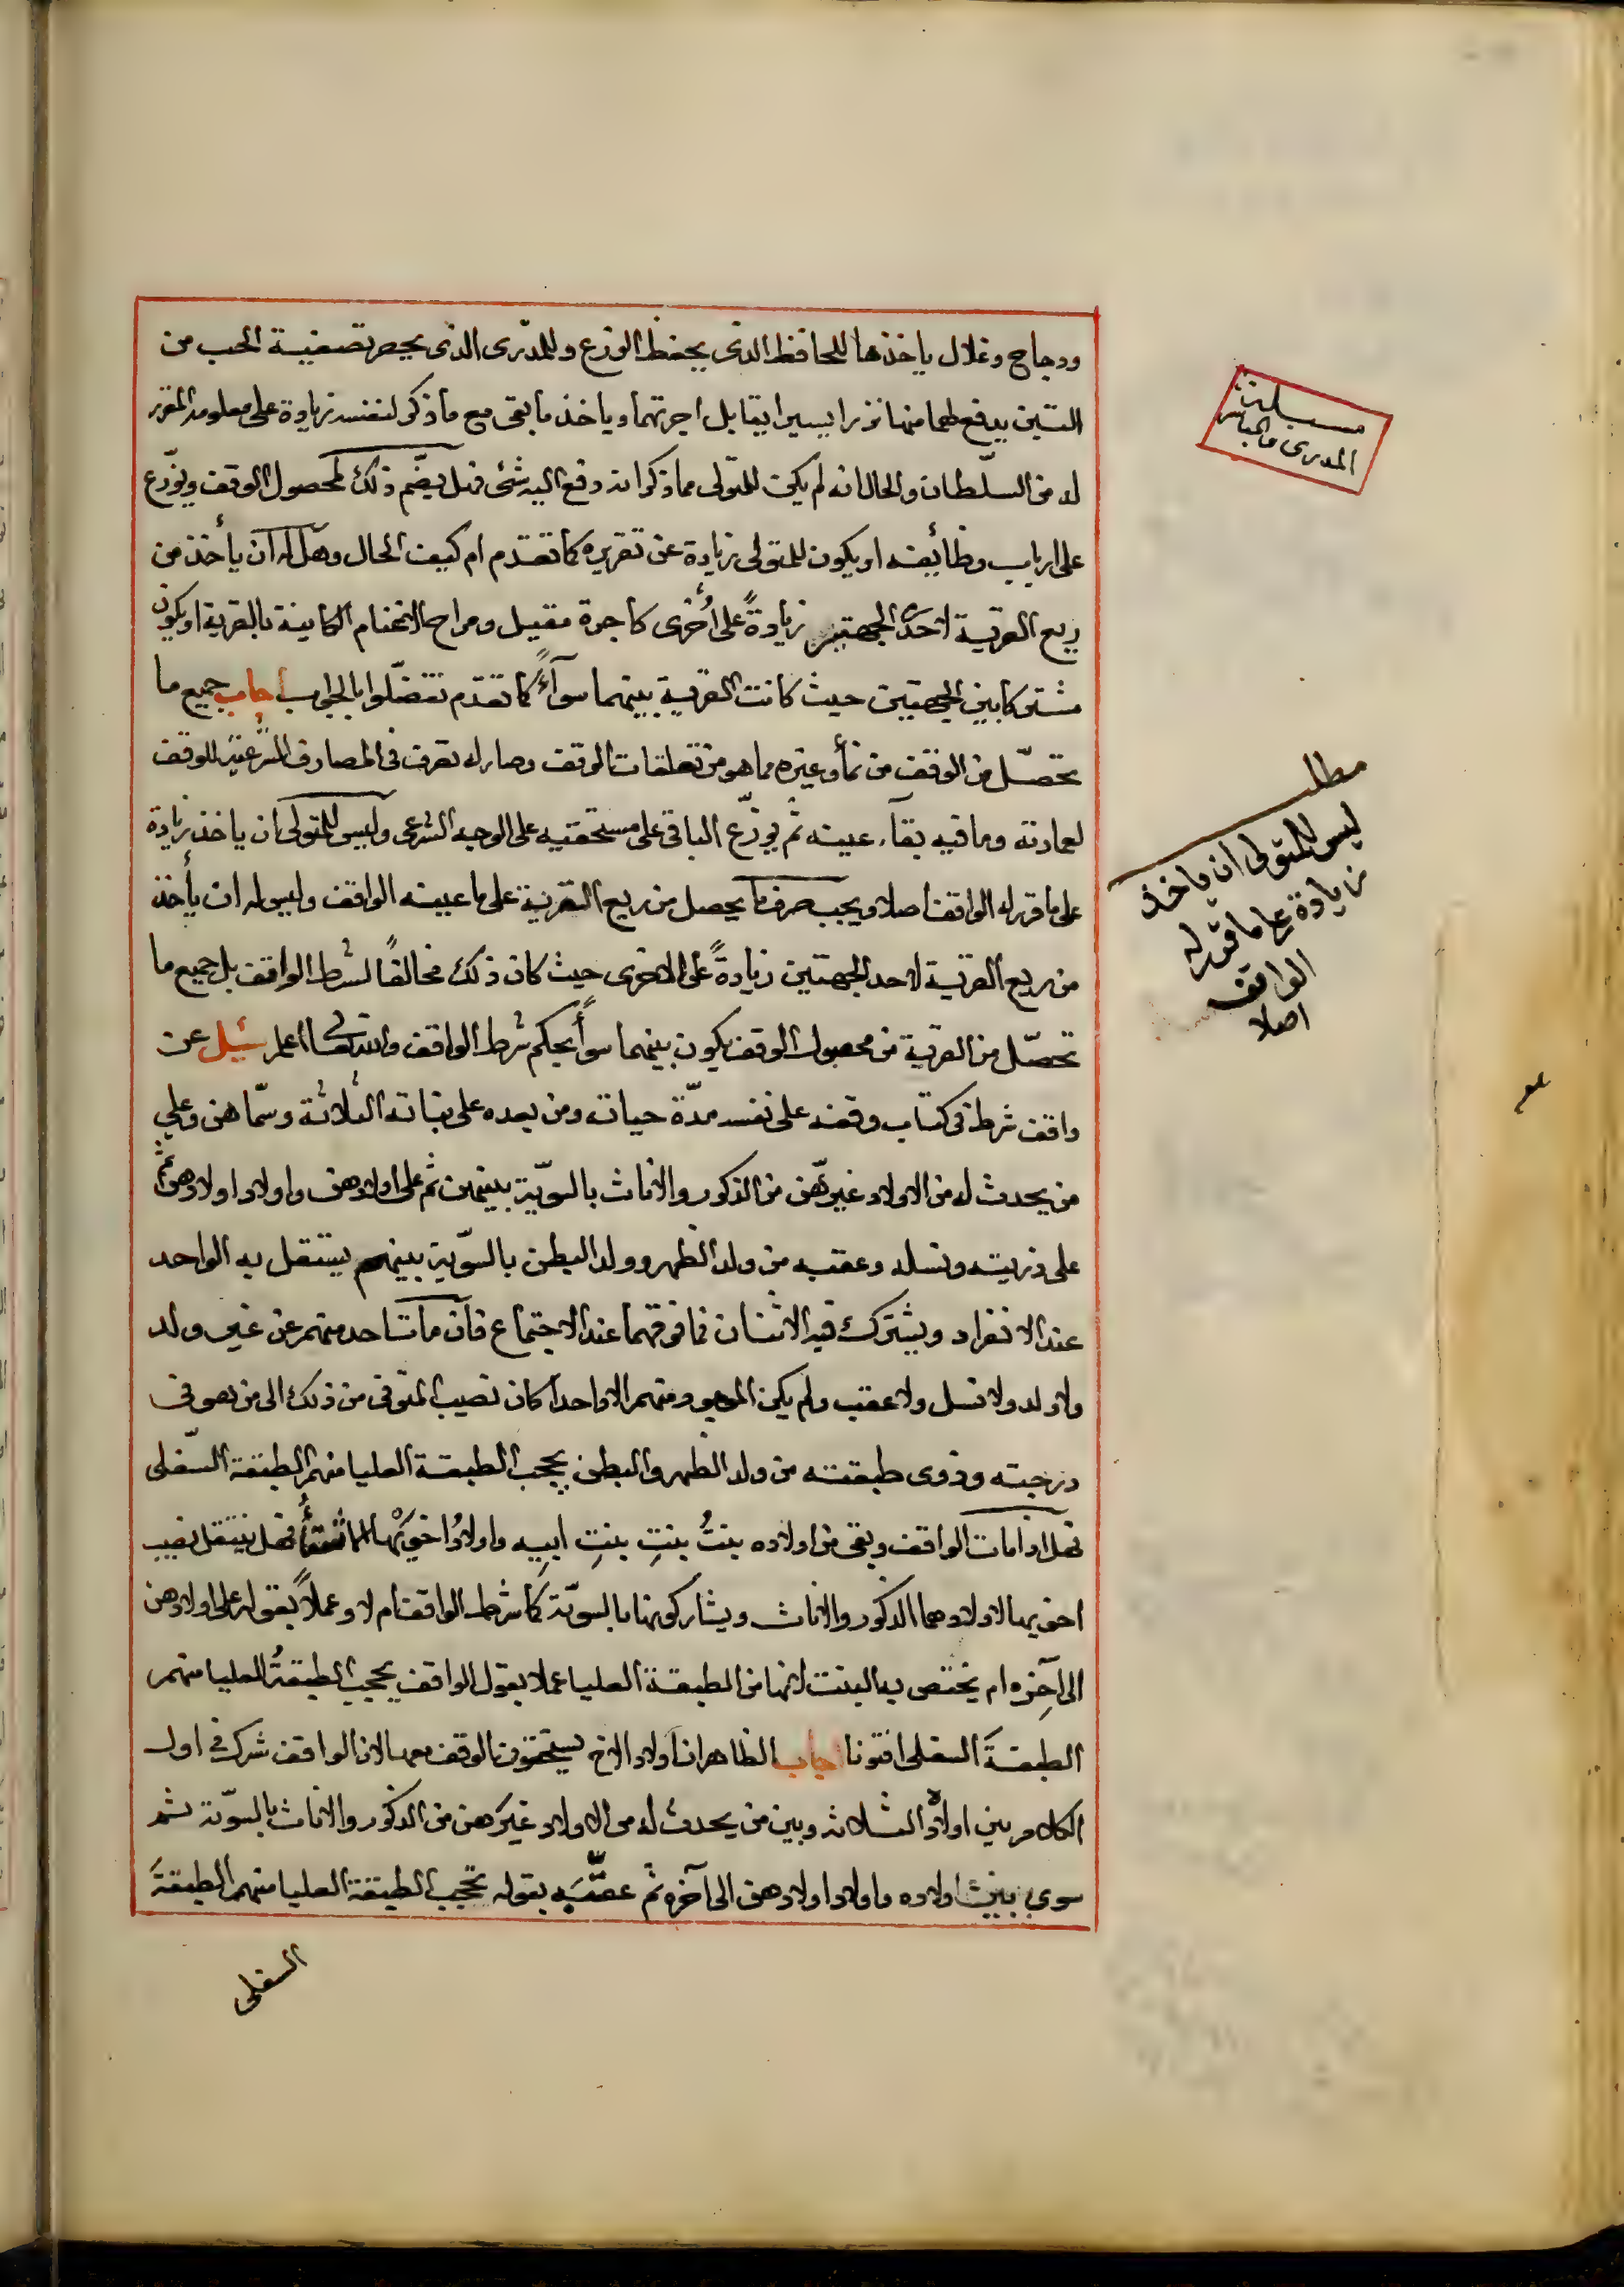 ودجاج وغلال ياخذها للحافظ الذى يحفظ الوزع وللمدّرى الذى يحصر تصفية الحب من
التبن يدفع لهما منها نزرا يسيرا يقابل اجرتهما وياخذ ما بقى مع ما ذكر لنفسه زيادة على معلومه المقرر
له من السلّطان والحال انه لم يكن للمتولى مما ذكر انه دفع اليه شئ فهل يضّم ذلك لمحصول الوقف ويوّزع
على ارباب وظائفه او يكون للمتولى زيادة عن تقريره كما تقدم ام كيف الحال وهل له ان يأخذ من
ريع القرية لاحد الجهتين زيادةً على أُخرى كاجرة مقيل ومراح الاغنام الكاينة بالقرية او يكون
مشتركا بين الجهتين حيث كانت القرية بينهما سوآءً كما تقدم تفضّلوا بالجواب اجاب جميع ما
تحصّل من الوقف من نمأ وغيره مما هو من تعلقات الوقف وصار له تصرف فى المصارف الشرعية للوقف
لعمارته وما فيه بقآء عينه ثم يوزّع الباقى على مستحقيه على الوجه الشرعى وليس للمتولى ان ياخذ زيادة
على ما قرر له الواقف اصلا ويجب صرف ما يحصل من ريع القرية على ما عينه الواقف وليس له ان يأخذ
من ريع القرية لاحد الجهتين زيادةً على الاخرى حيث كان ذلك مخالفًا لشرط الواقف بل جميع ما
تحصّل من القرية من محصول الوقف يكون بينهما سوأ بحكم شرط الواقف والله تعالى اعلم سئل عن
واقف شرط فى كتاب وقفه على نفسه مدّة حياته ومن بعده على بناته الثلاثة وسمّاهن وعلى
من يحدث له من الاولاد غيرهّن من الذكور والاناث بالسويّة بينهن ثم على اولادهن واولاد اولادهن ثم
على ذريته ونسله وعقبه من ولد الظهر وولد البطن بالسوّية بينهم يستقل به الواحد
عند الانفراد ويشترك فيه الاثنان فما فوقهما عند الاجتماع فان مات احد منهم عن غير ولد
ولا ولد ولد ولا نسل ولا عقب ولم يكن الموجود منهم الا واحدا كان نصيب المتوفى من ذلك الى من هو فى
درجته وذوى طبقته من ولد الظهر والبطن يحجب الطبقة العليا منهم الطبقة السّفلى
فهل اذا مات الواقف وبقى من اولاده بنتُ بنتِ بنتِ ابيه واولادُ اخويْها فهل ينتقل نصيب
اخويها لاولادهما الذكور والاناث ويشاركونها بالسويّة كما شرط الواقف ام لا وعملاً بقوله على اولادهن
الى آخِره ام يختص به البنت لانها من الطبقة العليا عملا بقول الواقف يحجب الطبقةُ العليا منهم
الطبقةَ السفلى افتونا اجاب الظاهر ان اولاد الاخ يستحقون الوقف معها لان الواقف شرك فى اول
الكلام بين اولاده الثلاثة وبين من يحدث له من الاولاد غيرَهن من الذكور والاناث بالسوّية ثم
سوى بين اولاده واولاد اولادهن الى آخره ثم عقّبَه بقوله تحجب الطبقة العليا منهم الطبقةَ
السفلى
المدرى
مطلب
ليس للمتولى ان ياخذ
زيادة على ما قرر له
الواقف
اصلا